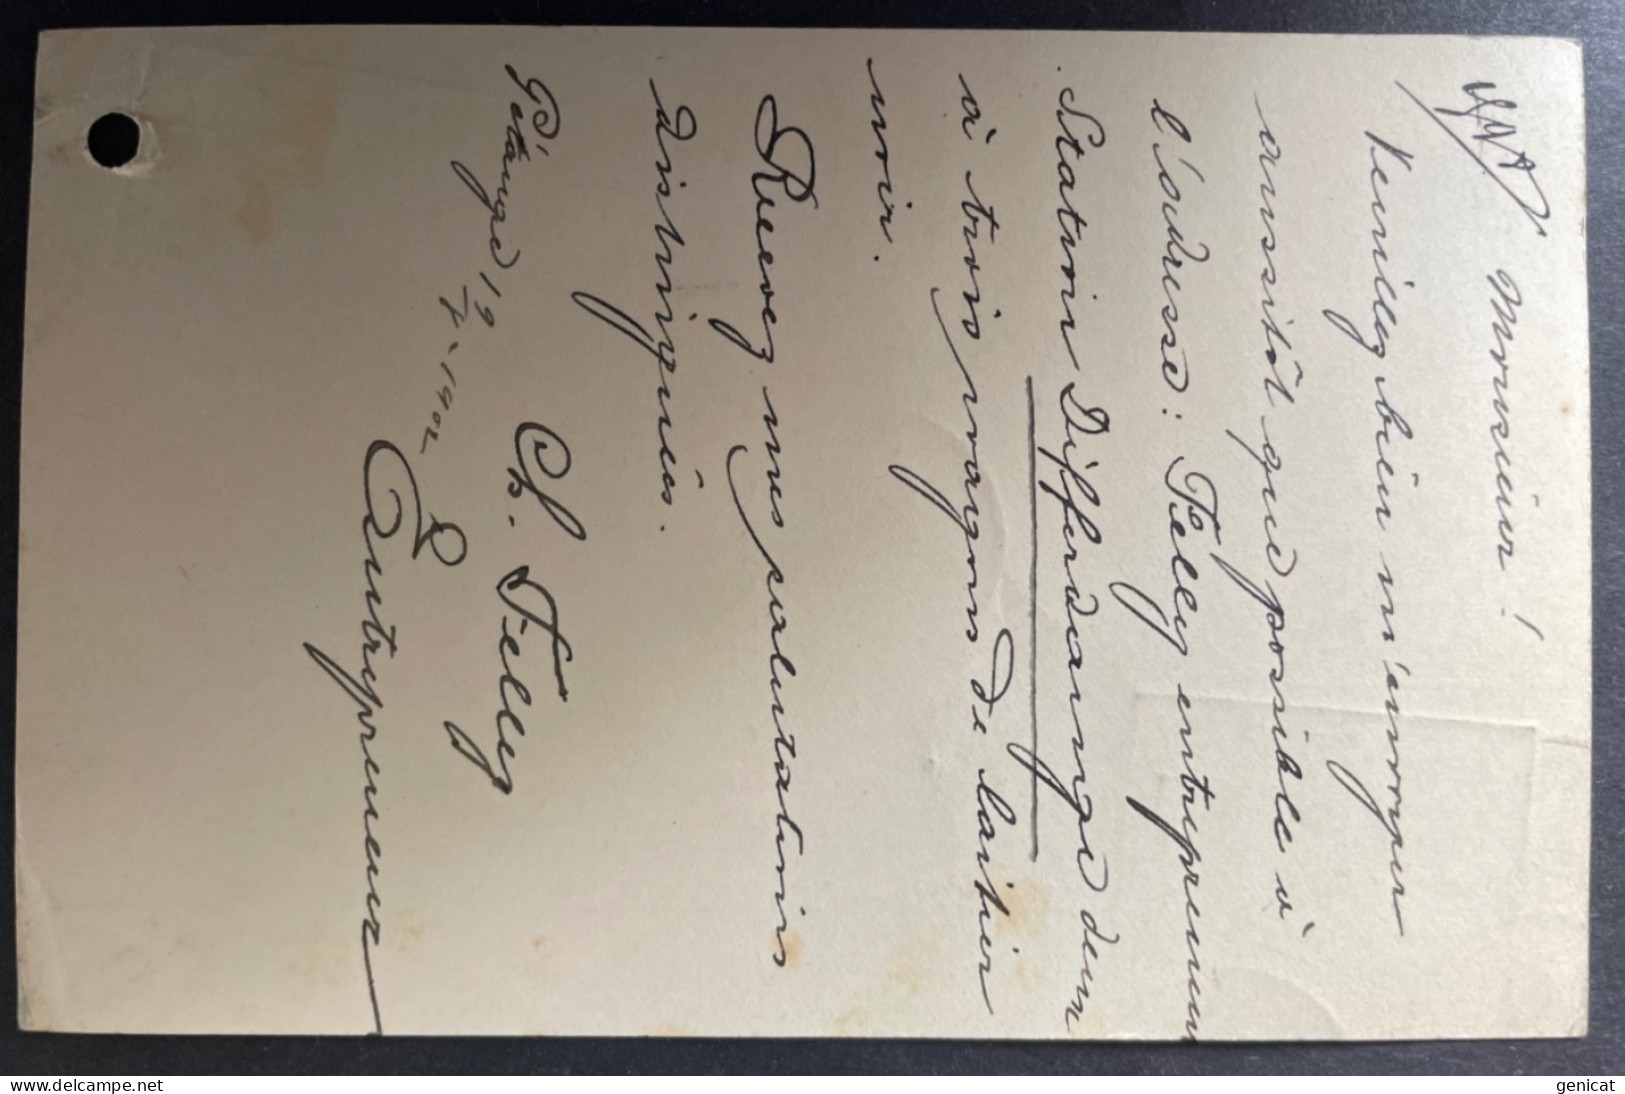 Monsieur!
Veuillez bien m'envoyer
aussitôt que possible à
l'adresse: Felly entrepreneur
Station Differdange deux
à trois wagons de laitier
noir.
Recevez mes salutations
distingués.
Pétange 19/ 1902
Ch. Felly
Entrepreneur
genicat